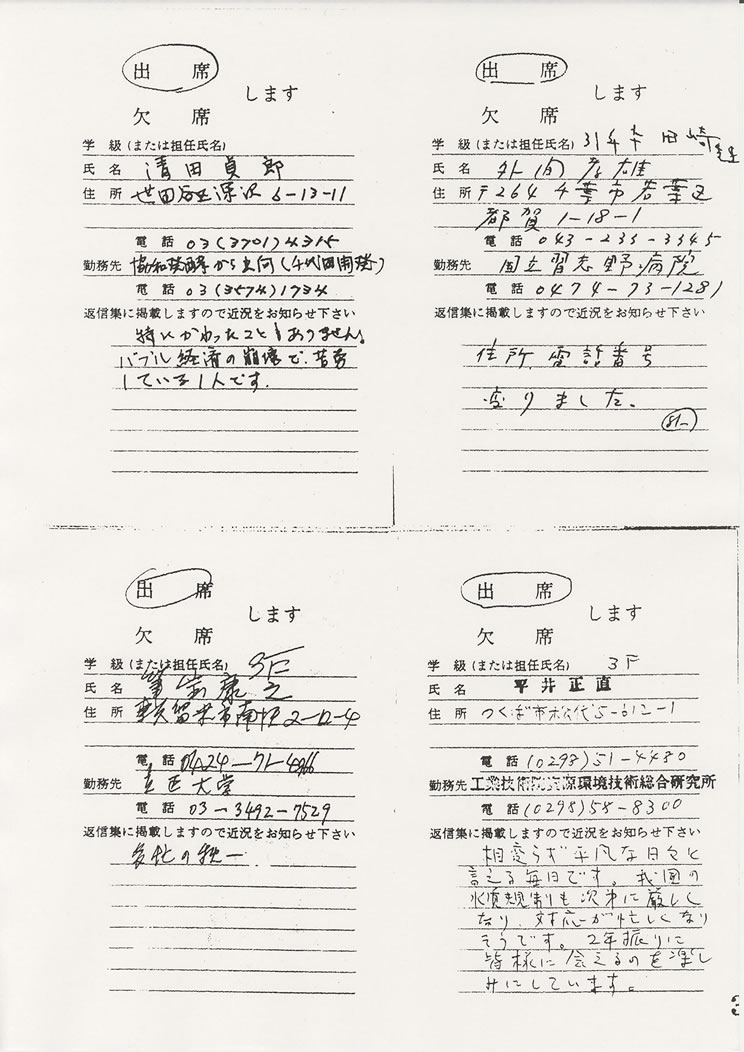 出 席
します
欠 席
学 級 (または担任氏名)
氏 名 清田貞郎
住 所 世田谷区深沢 6-13-11
電 話 03(3701)4315
勤務先 協和醗酵から出向(千代田開発)
電 話 03(3574)1734
返信集に掲載しますので近況をお知らせ下さい
特にかわったこともありません。
バブル経済の崩壊で、苦労
している1人です.
出 席
します
欠 席
学 級 (または担任氏名) 31年卒 田崎
氏 名 外間 孝雄
住 所 〒264 千葉市若葉区
都賀 1-18-1
電 話 043-233-3345
勤務先 国立習志野病院
電 話 0474-73-1281
返信集に掲載しますので近況をお知らせ下さい
住所、電話番号
変りました。
出 席
します
欠 席
学 級 (または担任氏名) 3F
氏 名 康之
住 所 東久留米市南沢 2-12-4
電 話 0424-71-4066
勤務先 立正大学
電 話 03-3492-7529
返信集に掲載しますので近況をお知らせ下さい
多忙の秋一
出 席
します
欠 席
学 級 (または担任氏名) 3F
氏 名 平井正直
住 所 つくば市松代5-612-1
電 話 (0298)51-4480
勤務先 工業技術院資源環境技術総合研究所
電 話 (0298)58-8300
返信集に掲載しますので近況をお知らせ下さい
相変らず平凡な日々と
言える毎日です。我国の
水質規制も次第に厳しく
なり、対応が忙しくなり
そうです。2年振りに
皆様に会えるのを楽し
みにしています。